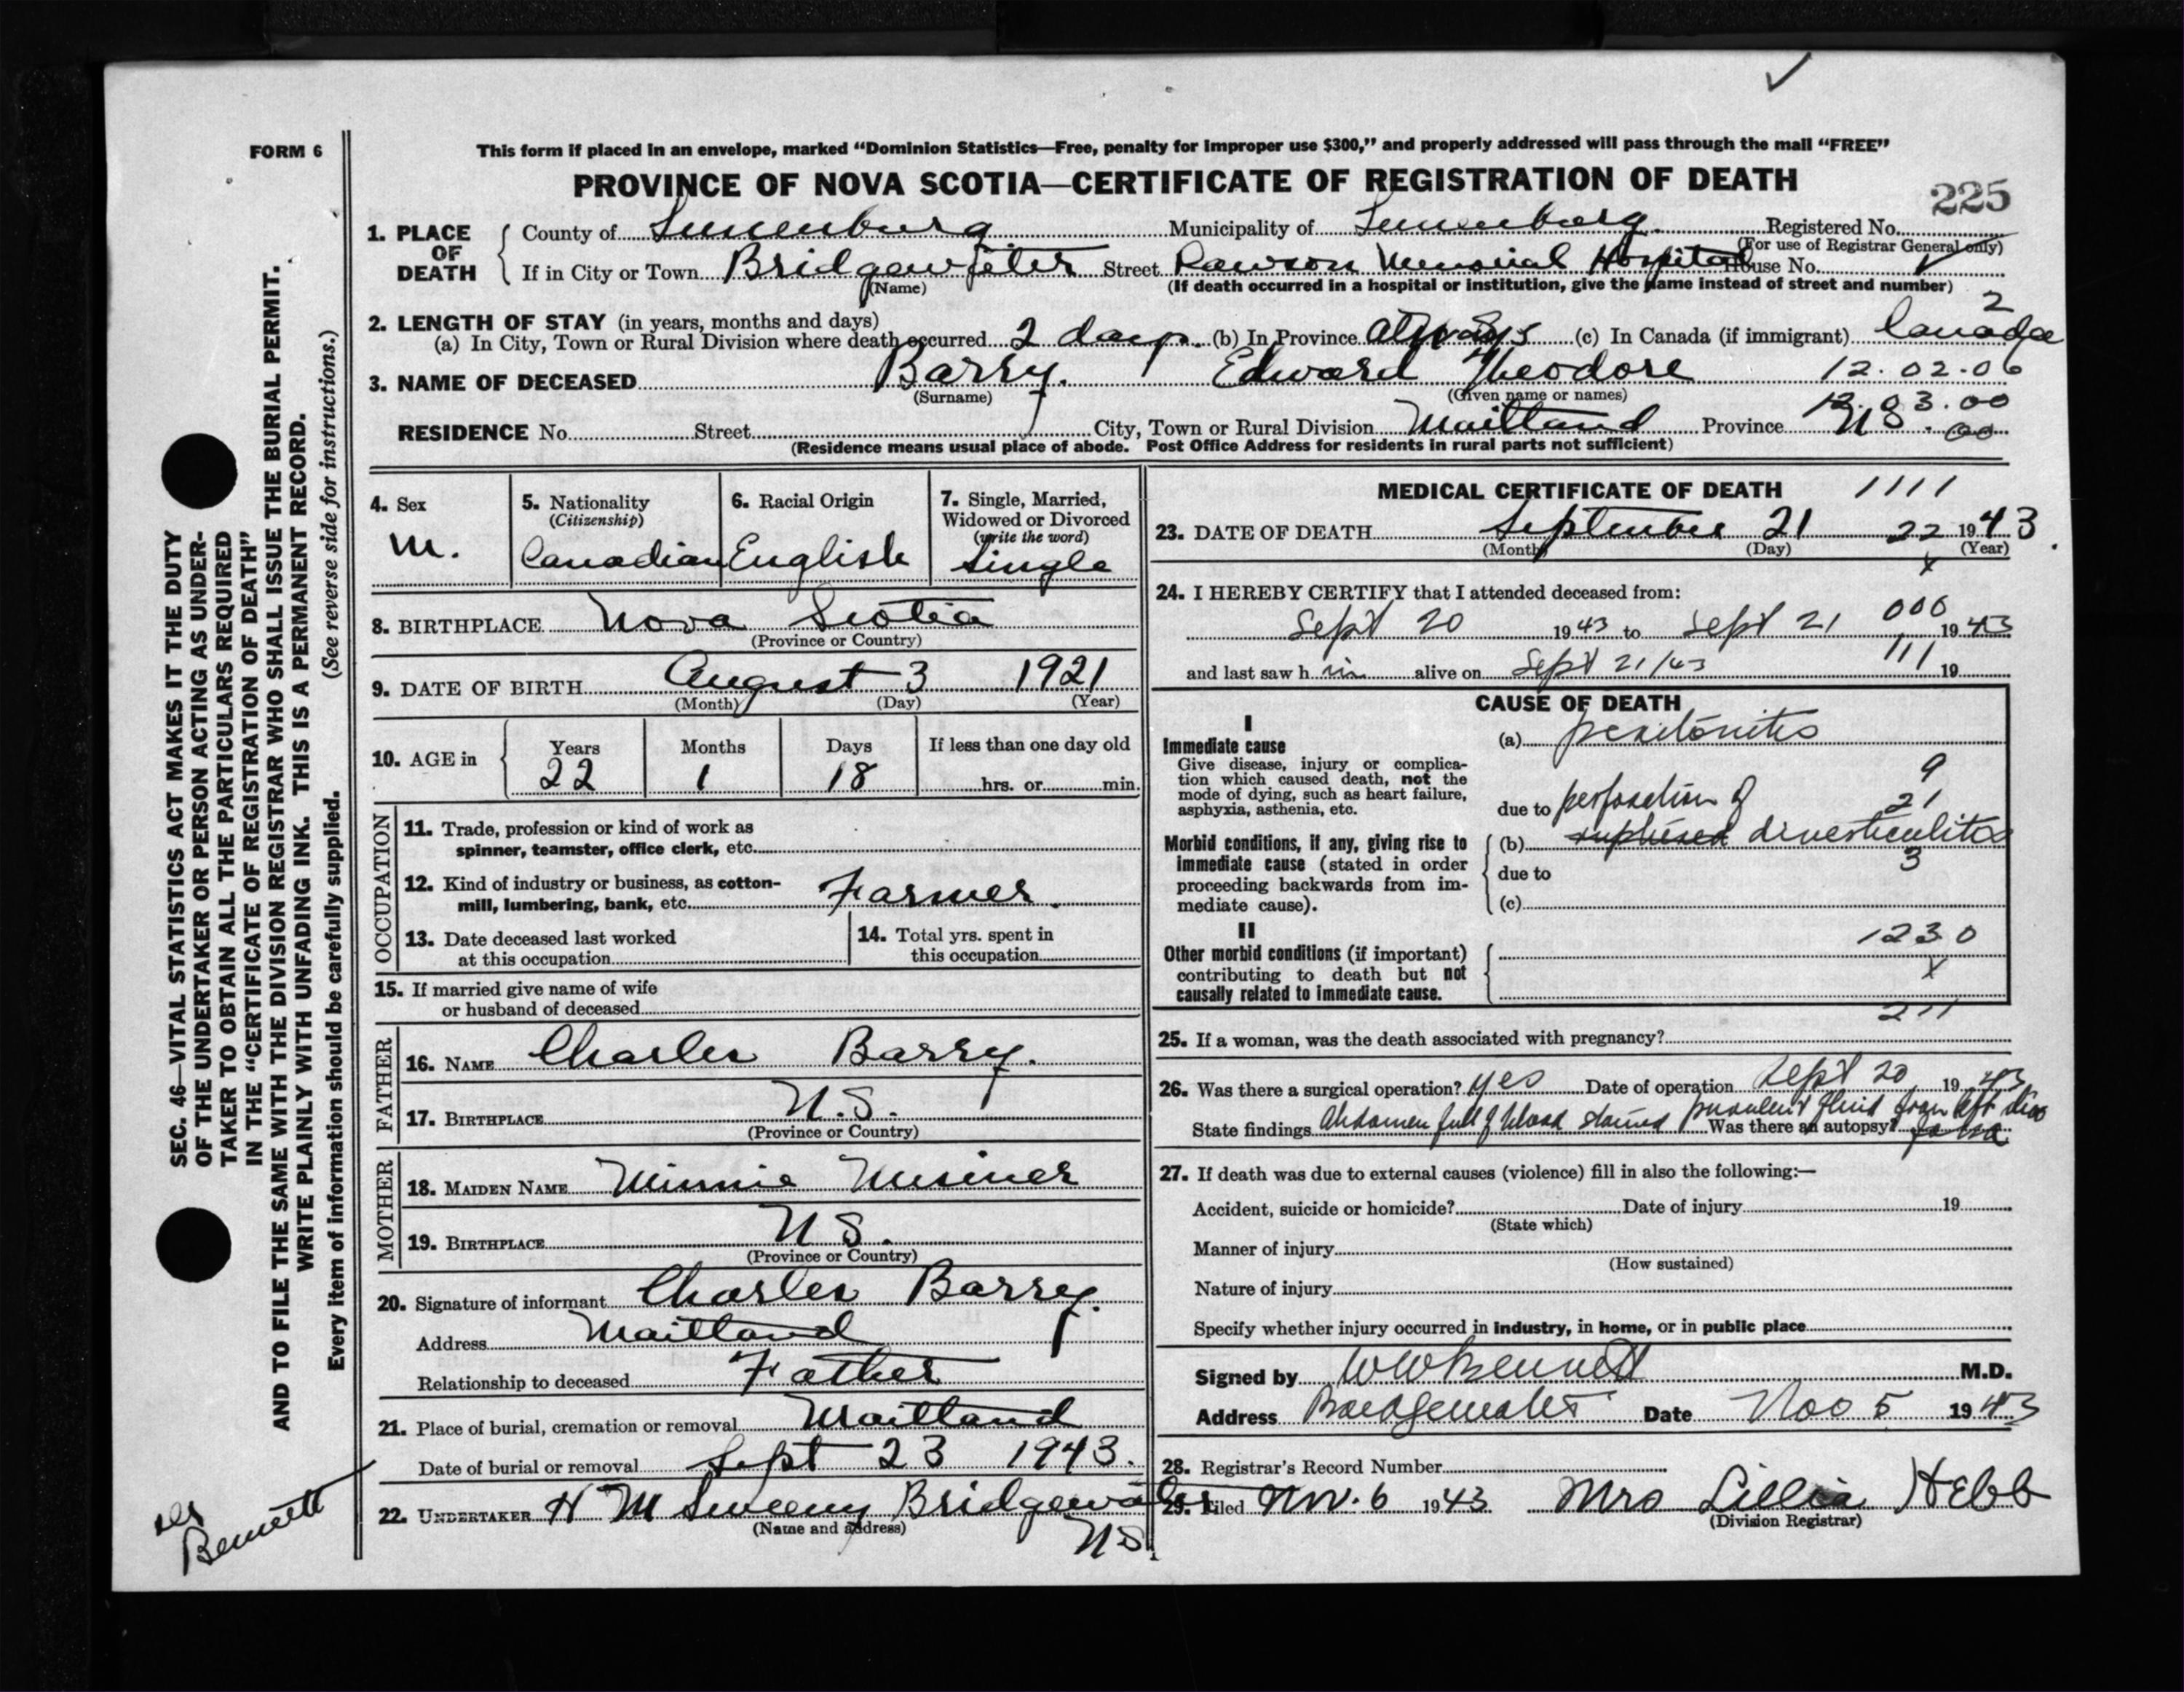 FORM 6
This form if placed in an envelope, marked “Dominion Statistics—Free, penalty for improper use $300,” and properly addressed will pass through the mail “FREE”
PROVINCE OF NOVA SCOTIA—CERTIFICATE OF REGISTRATION OF DEATH
225
1. PLACE OF DEATH
County of Lunenburg Municipality of Lunenburg Registered No.
(For use of Registrar General only)
If in City or Town Bridgewater Street Dawson Memorial Hospital House No.
(Name) (If death occurred in a hospital or institution, give the name instead of street and number)
2. LENGTH OF STAY (in years, months and days) 2
(a) In City, Town or Rural Division where death occurred 2 days (b) In Province always (c) In Canada (if immigrant) Canada
3. NAME OF DECEASED Barry. Edward Theodore 12.02.06
(Surname) (Given name or names)
12.03.00
RESIDENCE No. Street City, Town or Rural Division Maitland Province NS. 00
(Residence means usual place of abode. Post Office Address for residents in rural parts not sufficient)
4. Sex
M.
5. Nationality
(Citizenship)
Canadian
6. Racial Origin
English
7. Single, Married,
Widowed or Divorced
(write the word)
Single
8. BIRTHPLACE Nova Scotia
(Province or Country)
9. DATE OF BIRTH August 3 1921
(Month) (Day) (Year)
10. AGE in
Years Months Days If less than one day old
22 1 18 hrs. or min.
OCCUPATION
11. Trade, profession or kind of work as
spinner, teamster, office clerk, etc.
12. Kind of industry or business, as cotton-
mill, lumbering, bank, etc. Farmer.
13. Date deceased last worked
at this occupation
14. Total yrs. spent in
this occupation
15. If married give name of wife
or husband of deceased
FATHER
16. NAME Charles Barry.
17. BIRTHPLACE N.S.
(Province or Country)
MOTHER
18. MAIDEN NAME Minnie Misener
19. BIRTHPLACE N S.
(Province or Country)
20. Signature of informant Charles Barry.
Address Maitland
Relationship to deceased Father
21. Place of burial, cremation or removal Maitland
Date of burial or removal Sept 23 1943.
22. UNDERTAKER H M Sweeny Bridgewater
(Name and address) NS.
MEDICAL CERTIFICATE OF DEATH 1111
23. DATE OF DEATH September 21 22 1943
(Month) (Day) (Year)
x
24. I HEREBY CERTIFY that I attended deceased from:
000
Sept 20 1943 to Sept 21 1943
and last saw h im alive on Sept 21/43 111 19
CAUSE OF DEATH
I
Immediate cause
Give disease, injury or complica-
tion which caused death, not the
mode of dying, such as heart failure,
asphyxia, asthenia, etc.
(a) peritonitis
9
due to perforation of
21
Morbid conditions, if any, giving rise to
immediate cause (stated in order
proceeding backwards from im-
mediate cause).
(b) diverticulitis
3
due to
(c)
II
Other morbid conditions (if important)
contributing to death but not
causally related to immediate cause.
1230
x
211
25. If a woman, was the death associated with pregnancy?
26. Was there a surgical operation? yes Date of operation Sept 20, 1943
State findings Abdomen full of blood stained purulent fluid from left
Was there an autopsy?
27. If death was due to external causes (violence) fill in also the following:—
Accident, suicide or homicide? Date of injury 19
(State which)
Manner of injury
(How sustained)
Nature of injury
Specify whether injury occurred in industry, in home, or in public place
Signed by WWBennett M.D.
Address Bridgewater Date Nov 5 1943
28. Registrar's Record Number
29. Filed Nov. 6 1943 Mrs Lillia Hebb
(Division Registrar)
SEC. 46—VITAL STATISTICS ACT MAKES IT THE DUTY
OF THE UNDERTAKER OR PERSON ACTING AS UNDER-
TAKER TO OBTAIN ALL THE PARTICULARS REQUIRED
IN THE “CERTIFICATE OF REGISTRATION OF DEATH”
AND TO FILE THE SAME WITH THE DIVISION REGISTRAR WHO SHALL ISSUE THE BURIAL PERMIT.
WRITE PLAINLY WITH UNFADING INK. THIS IS A PERMANENT RECORD.
Every item of information should be carefully supplied. (See reverse side for instructions.)
Bennett